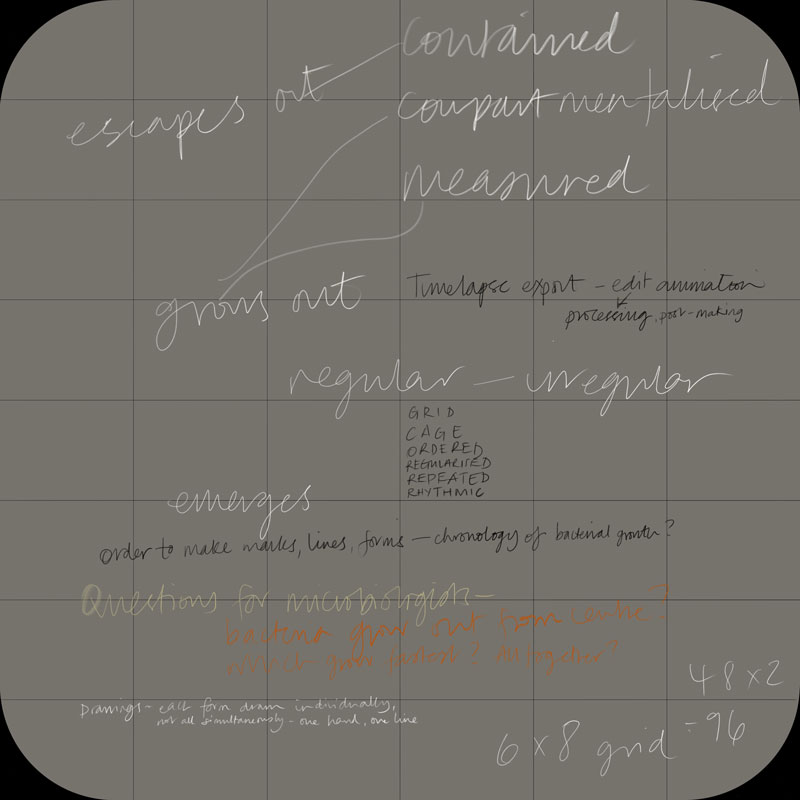 contained
escapes out
compartmentalised
measured
grows out
Timelapse export – edit animation
processing, post-making
regular – irregular
GRID
CAGE
ORDERED
REGULARISED
REPEATED
RHYTHMIC
emerges
order to make marks, lines, forms – chronology of bacterial growth?
Questions for microbiologists –
bacteria grow out from centre?
which grow fastest? All together?
48 x 2
Drawings – each form drawn individually,
not all simultaneously – one hand, one line
6 x 8 grid = 96